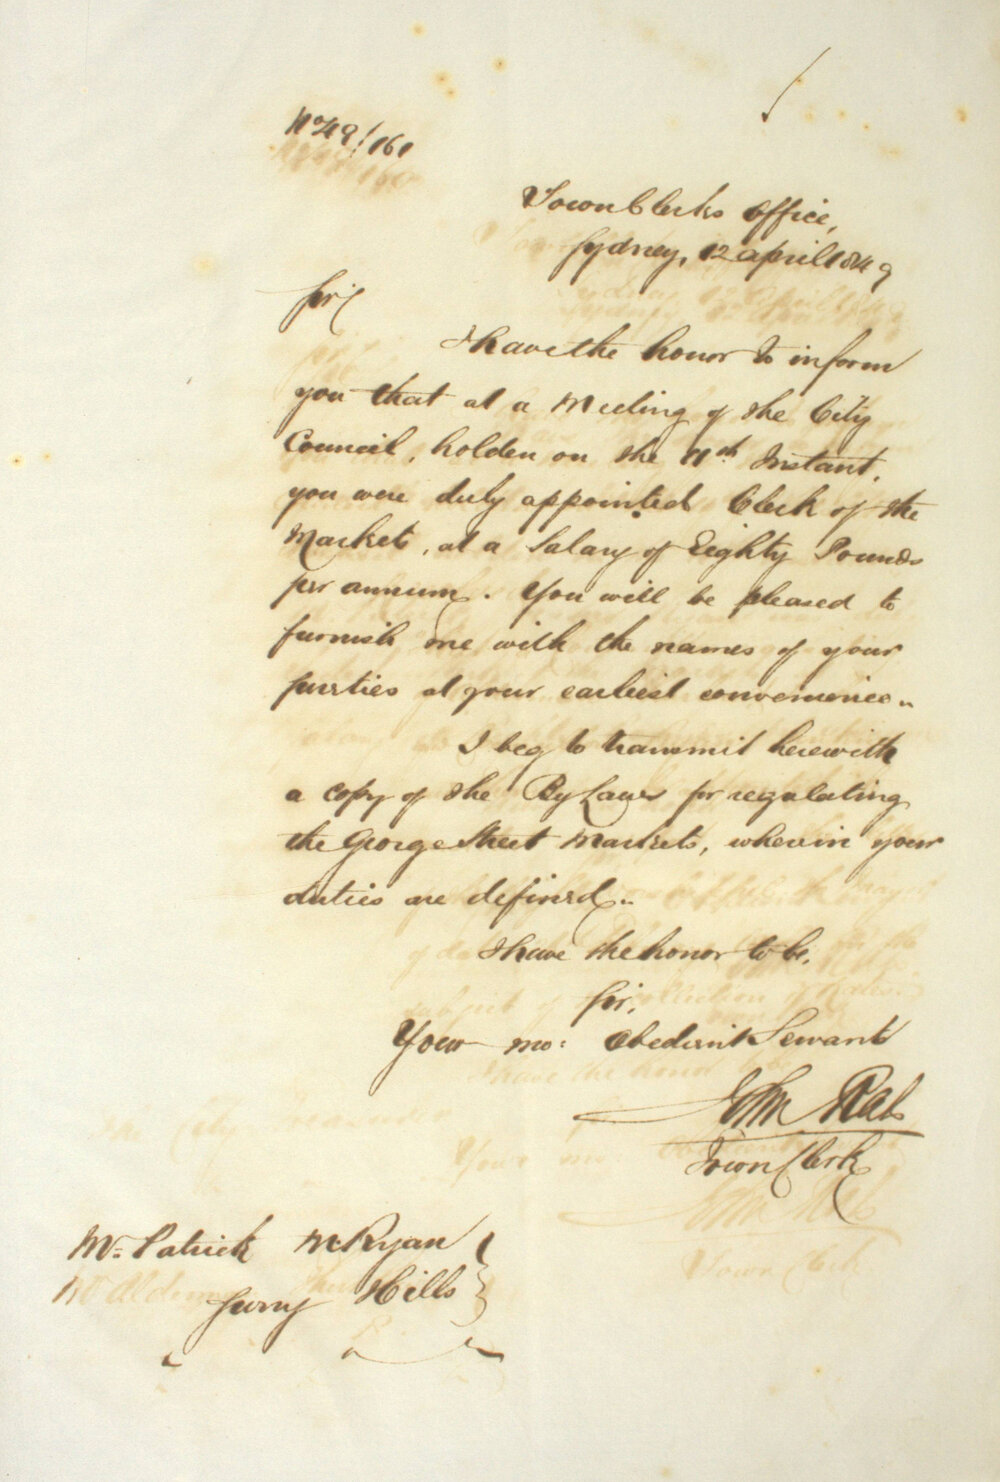 No 49/161
Town Clerks Office,
Sydney, 12 April 1849
Sir,
I have the honor to inform
you that at a Meeting of the City
Council, holden on the 11th Instant,
you were duly appointed Clerk of the
Markets, at a Salary of Eighty Pounds
per annum. You will be pleased to
furnish me with the names of your
surties at your earliest convenience.
I beg to transmit herewith
a copy of the By Laws for regulating
the George Street Markets, wherein your
duties are defined.
I have the honor to be,
Sir,
Your mo: Obedient Servant
John Rae
Town Clerk
Mr. Patrick McRyan
Surry Hills